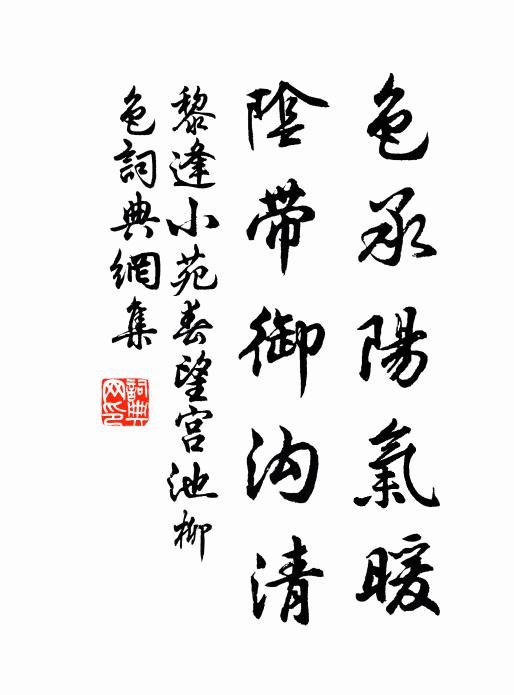 色承陽氣暖
陰帶御沟清
黎逢小苑春望宫池柳
色詞典網集
詞典
网印